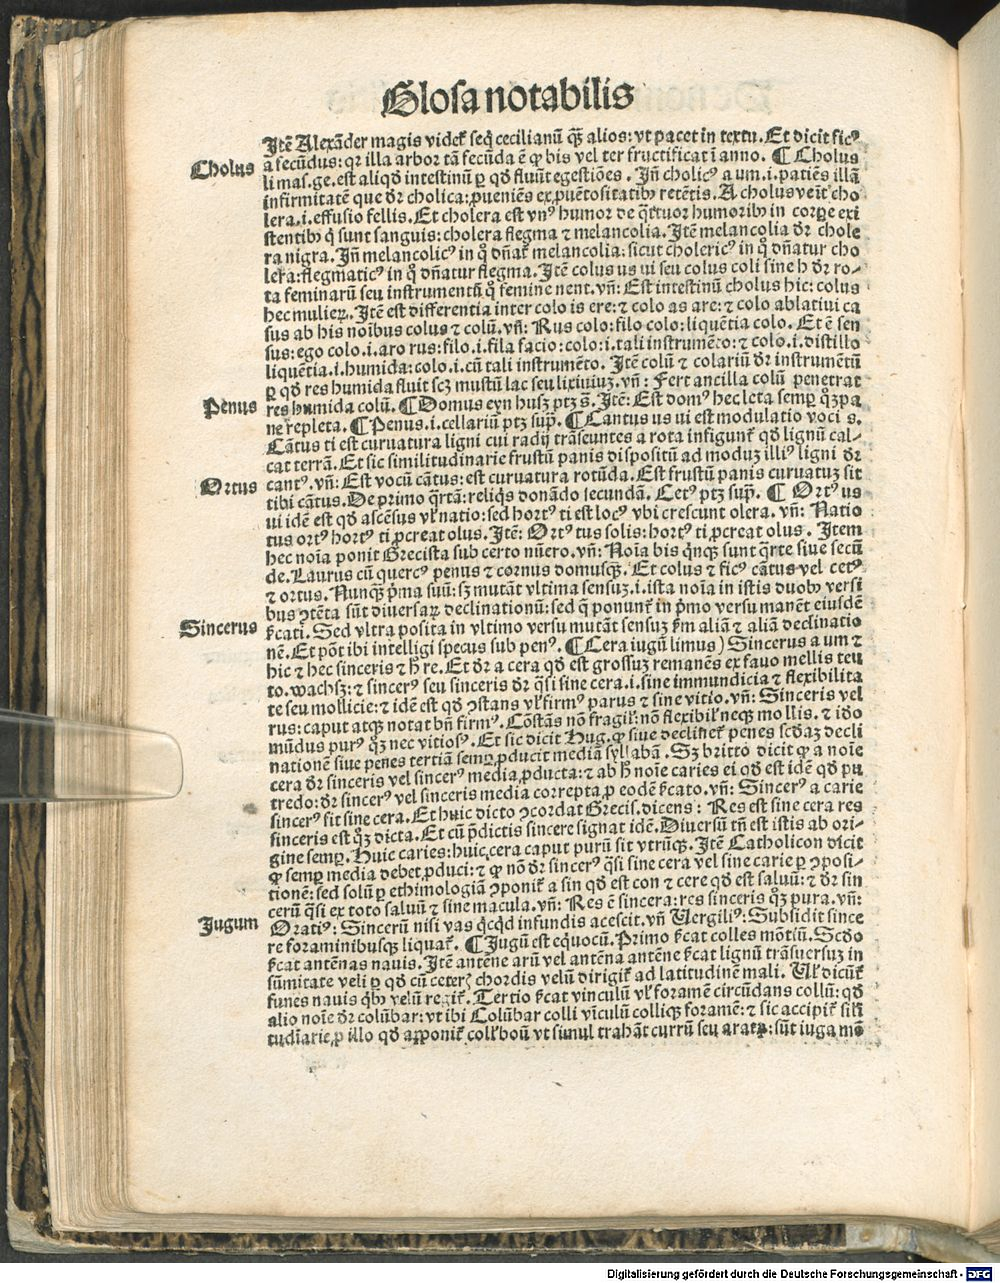 Glosa notabilis
Itẽ Alexãder magis videt᷑ seq̃ cecilianũ q̃ȝ alios: vt patet in textu. Et dicit ficꝰ
Cholus
a secũdus: qꝛ illa arbor tã fecũda ẽ ꝙ bis vel ter fructificat ĩ anno. ¶ Cholus
li mas. ge. est aliqď intestinũ ꝑ qď fluũt egestiões. Iñ cholicꝰ a um .i. patiẽs illã
infirmitatẽ que dr̃ cholica: ꝓueniẽs ex ꝓuẽtositatibꝰ retẽtis. A cholus veñt cho
lera .i. effusio fellis. Et cholera est vnꝰ humor de q̃ttuor humoribꝰ in corꝑe exi
stentibꝰ q̇ sunt sanguis: cholera flegma ⁊ melancolia. Itẽ melancolia dr̃ chole
ra nigra. Iñ melancolicꝰ in q̊ dñat᷑ melancolia: sicut cholericꝰ in q̊ dñatur cho
lera: flegmaticꝰ in q̊ dñatur flegma. Itẽ colus us ui seu colus coli sine h dr̃ ro-
ta feminarũ seu instrumentũ q̊ femine nent. vñ: Est intestinũ cholus hic: colus
hec mulieꝝ. Itẽ est differentia inter colo is ere: ⁊ colo as are: ⁊ colo ablatiui ca
sus ab his noĩbus colus ⁊ colũ. vñ: Rus colo: filo colo: liquẽtia colo. Et ẽ sen
sus: ego colo .i. aro rus: filo .i. fila facio: colo: .i. tali instrumẽto: ⁊ colo .i. distillo
liquẽtia .i. humida: colo .i. cũ tali instrumẽto. Itẽ colũ ⁊ colariũ dr̃ instrumẽtũ
ꝑ qď res humida fluit scȝ mustũ lac seu lixiuiuȝ. vñ: Fert ancilla colũ penetrat
Penus
res humida colũ. ¶ Domus eyn husȝ ptȝ s̃. Itẽ: Est domꝰ hec leta semꝑ q̊ȝ pa
ne repleta. ¶ Penus .i. cellariũ ptȝ sup̃. ¶ Cantus us ui est modulatio voci s.
Cãtus ti est curuatura ligni cui radij trãseuntes a rota infigunt᷑ qď lignũ cal-
cat terrã. Et sic similitudinarie frustũ panis dispositũ ad moduȝ illiꝰ ligni dr̃
Ortus
cantꝰ. vñ: Est vocũ cãtus: est curuatura rotũda. Est frustũ panis curuatuȝ sit
tibi cãtus. De primo q̃rtã: reliq̃s donãdo secundã. Cetꝰ ptȝ sup̃. ¶ Ortꝰ us
ui idẽ est qď ascẽsus vl᷑ natio: sed hortꝰ ti est locꝰ vbi crescunt olera. vñ: Natio
tus ortꝰ hortꝰ ti ꝓcreat olus. Itẽ: Ortꝰ tus solis: hortꝰ ti ꝓcreat olus. Item
hec noĩa ponit Grecista sub certo nũero. vñ: Noĩa bis q̃nqȝ sunt q̃rte siue secũ
de. Laurus cũ quercꝰ penus ⁊ cornus domusqȝ. Et colus ⁊ ficꝰ cãtus vel cetꝰ
⁊ ortus. Nunqȝ p̃ma suũ: sȝ mutãt vltima sensuȝ .i. ista noĩa in istis duobꝰ versi
bus ꝯtẽta sũt diuersaꝝ declinationũ: sed q̃ ponunt᷑ in p̃mo versu manẽt eiusdẽ
Sincerus
ẜcati. Sed vltra posita in vltimo versu mutãt sensuȝ ẜm aliã ⁊ aliã declinatio
nẽ. Et põt ibi intelligi specus sub penꝰ. ¶ (Cera iugũ limus) Sincerus a um ⁊
hic ⁊ hec sinceris ⁊ h̊ re. Et dr̃ a cera qď est grossuȝ remanẽs ex fauo mellis teu
to. wachsȝ: ⁊ sincerꝰ seu sinceris dr̃ q̃si sine cera .i. sine immundicia ⁊ flexibilita
te seu mollicie: ⁊ idẽ est qď ꝯstans vl᷑ firmꝰ purus ⁊ sine vitio. vñ: Sinceris vel
rus: caput atqȝ notat bñ firmꝰ. Cõstãs nõ fragil᷑: nõ flexibil᷑ neqȝ mollis. ⁊ ido
mũdus purꝰ q̊ȝ nec vitiosꝰ. Et sic dicit Hug. ꝙ siue declinet᷑ penes scďaȝ decli
nationẽ siue penes tertiã semꝑ ꝓducit mediã syllabã. Sȝ britto dicit ꝙ a noĩe
cera dr̃ sinceris vel sincerꝰ media ꝓducta: ⁊ ab h̊ noĩe caries ei qď est idẽ qď pu
tredo: dr̃ sincerꝰ vel sinceris media correpta ꝓ eodẽ ẜcato. vñ: Sincerꝰ a carie
sincerꝰ sit sine cera. Et huic dicto ꝯcordat Grecis. dicens: Res est sine cera res
sinceris est q̊ȝ dicta. Et cũ p̃dictis sincere signat idẽ. Diuersũ tñ est istis ab ori-
gine semꝑ. Huic caries: huic cera caput purũ sit vtrũqȝ. Itẽ Catholicon dicit
ꝙ semꝑ media debet ꝓduci: ⁊ ꝙ nõ dr̃ sincerꝰ q̃si sine cera vel sine carie ꝑ ꝯposi-
tionẽ: sed solũ ꝑ ethimologiã ꝯponit᷑ a sin qď est con ⁊ cere qď est saluũ: ⁊ dr̃ sin
cerũ q̃si ex toto saluũ ⁊ sine macula. vñ: Res ẽ sincera: res sinceris q̊ȝ pura. vñ:
Iugum
Oratiꝰ: Sincerũ nisi vas q̇cq̇d infundis acescit. vñ Uergiliꝰ: Subsidit since
re foraminibusqȝ liquat᷑. ¶ Iugũ est eq̇uocũ. Primo ẜcat colles mõtiũ. Scďo
ẜcat antẽnas nauis. Itẽ antẽne arũ vel antẽna antẽne ẜcat lignũ trãsuersuȝ in
sũmitate veli ꝑ qď cũ ceteris chordis velũ dirigit᷑ ad latitudinẽ mali. Ul᷑ dicũt᷑
funes nauis q̇bꝰ velũ regit᷑. Tertio ẜcat vinculũ vl᷑ foramẽ circũdans collũ: qď
alio noĩe dr̃ colũbar: vt ibi Colũbar colli vĩculũ colliqȝ foramẽ: ⁊ sic accipit᷑ sili
tudĩarie ꝓ illo qď apponit᷑ coll᷑ boũ vt simul trahãt currũ seu aratꝝ: sũt iuga mõ
Digitalisierung gefördert durch die Deutsche Forschungsgemeinschaft - DFG